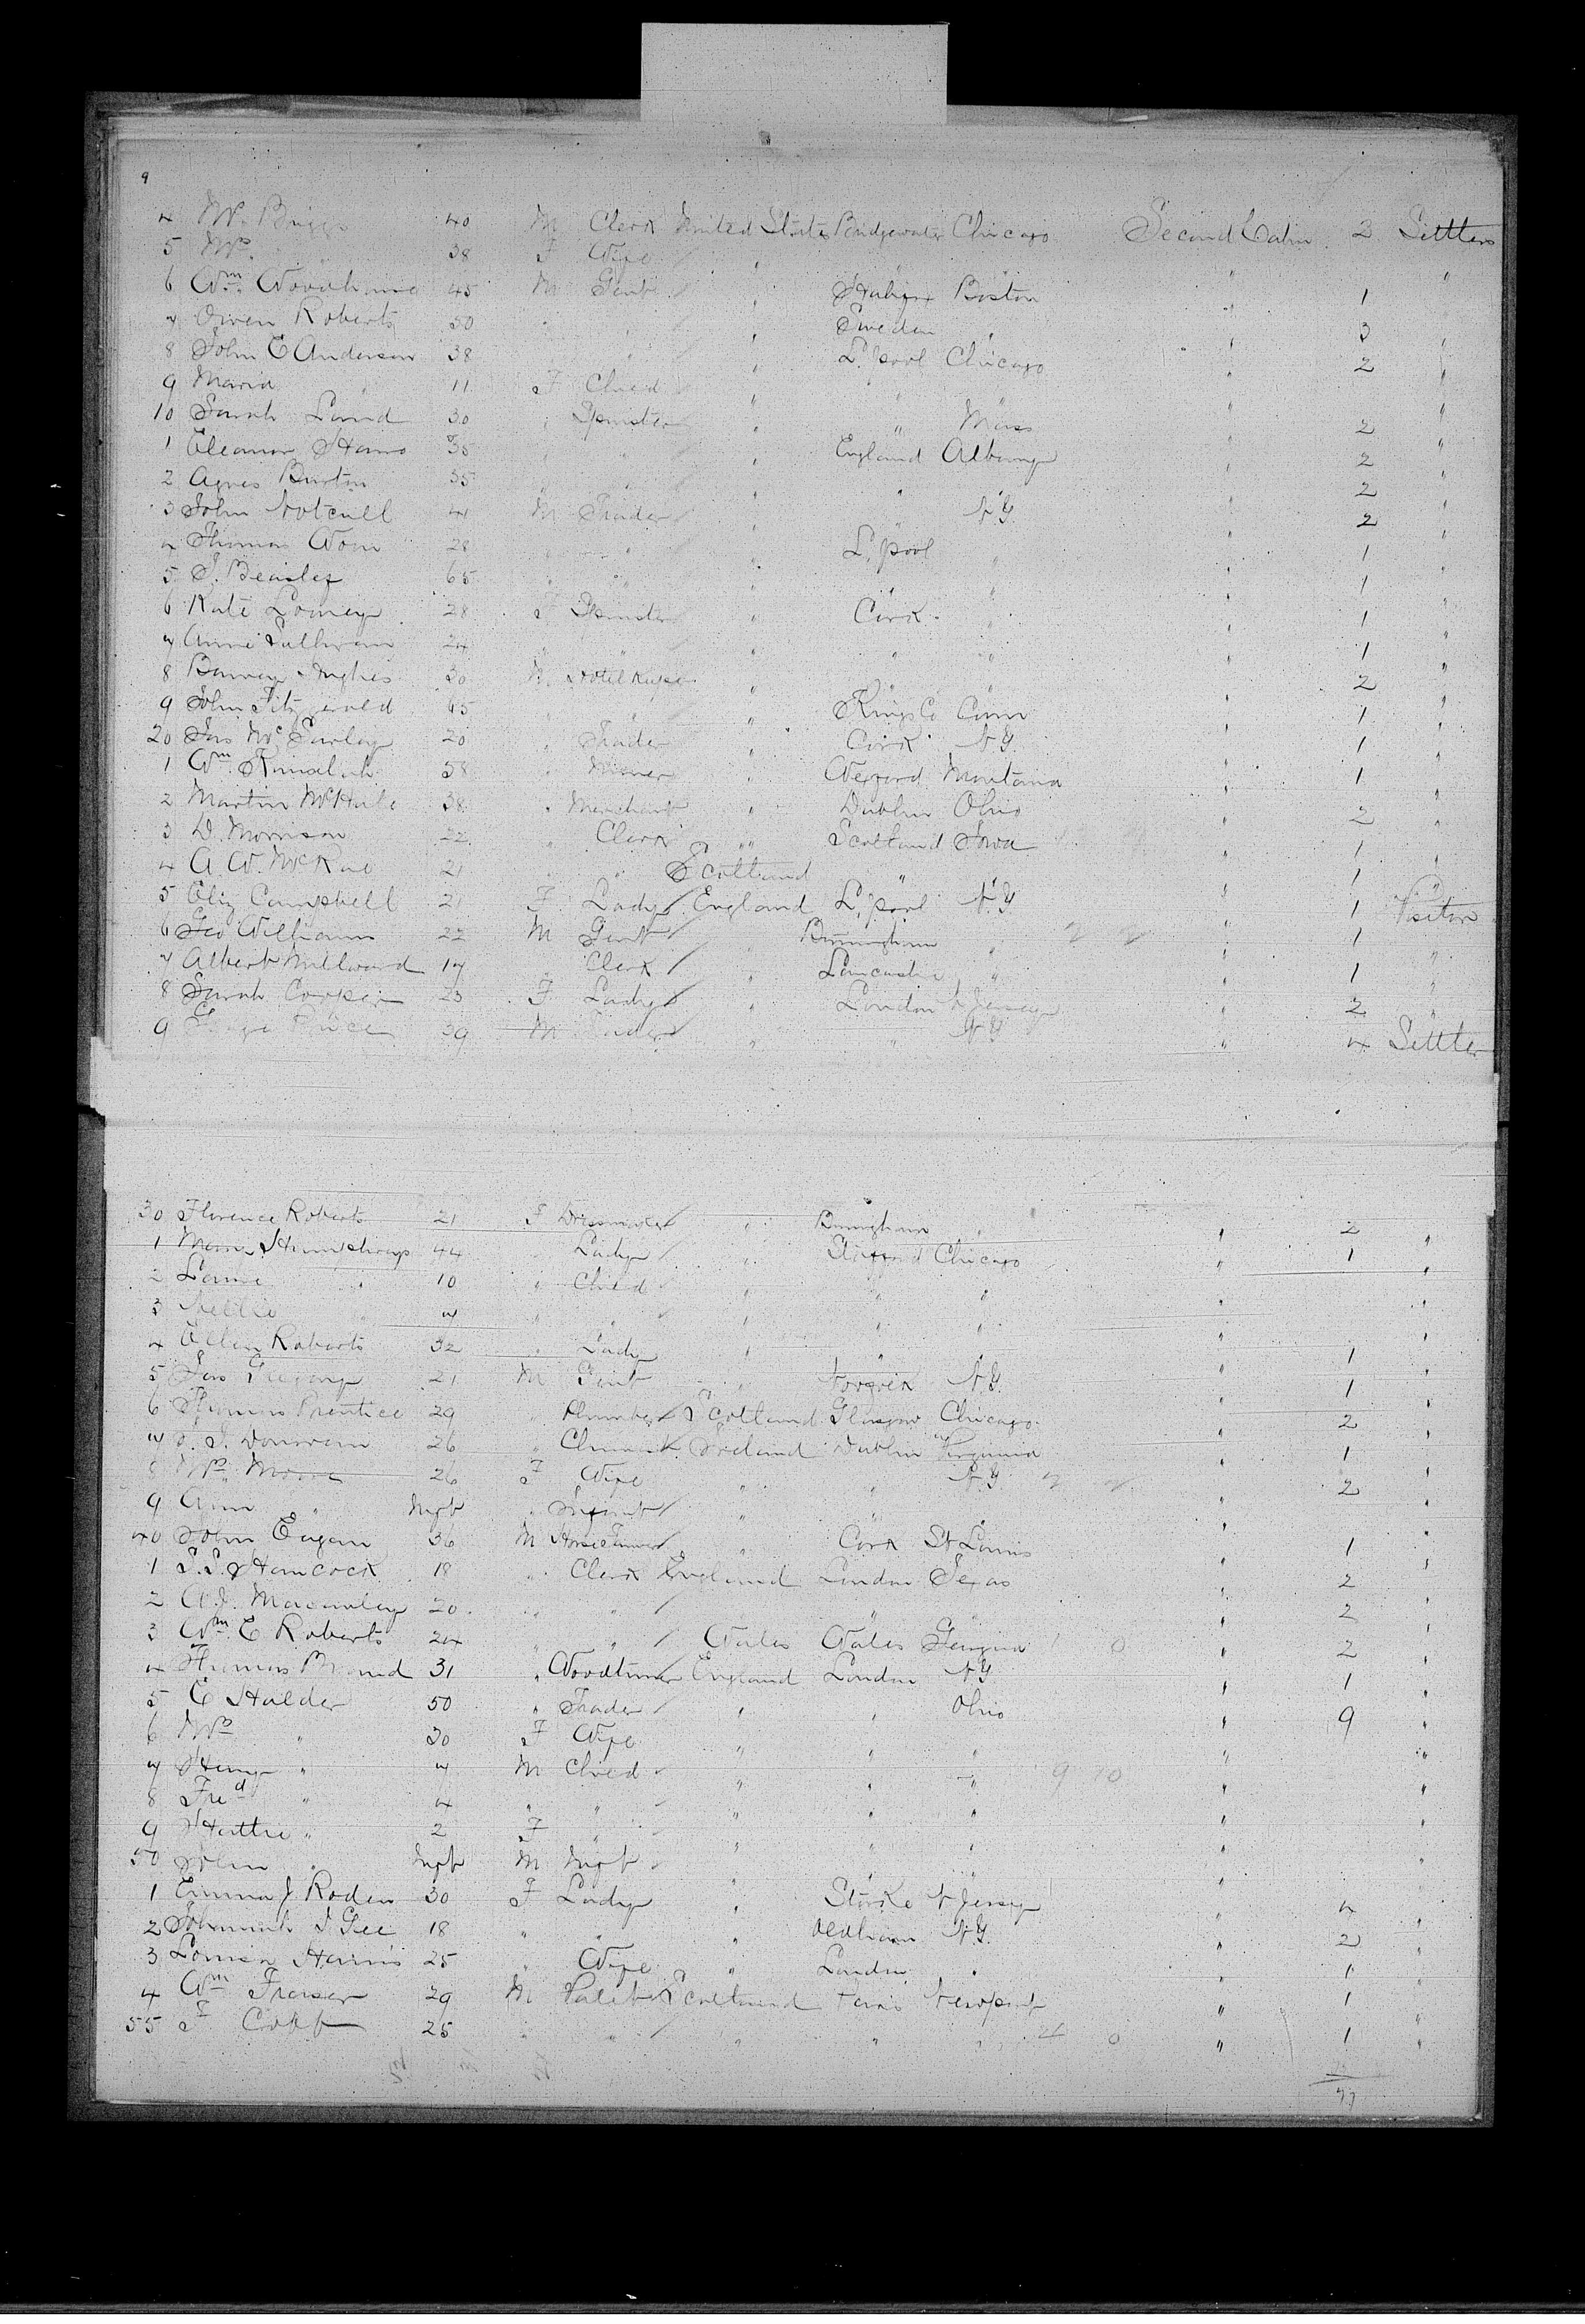 4 Mr. Briggs 40 M Clerk United States Bridgewater Chicago Second Cabin 2 Settlers
5 Mrs. " 38 F Wife " " "
6 Wm. Woodhouse 45 M Gent " Halifax Boston " 1 "
7 Owen Roberts 50 " " " Sweden " " 3 "
8 John E Anderson 38 " " " L.pool Chicago " 2 "
9 Maria " 11 F Child " " " " "
10 Sarah Laird 30 " Spinster " " Mass " 2 "
1 Eleanor 35 " " " England Albany " 2 "
2 Agnes Burton 35 " " " " " " 2 "
3 John 41 M Trader " " N.Y. " 2 "
4 Thomas 28 " " " L.pool " " 1 "
5 J. Beasley 65 " " " " " " 1 "
6 Kate Looney 28 F Spinster " Cork " " 1 "
7 Annie Sullivan 24 " " " " " " 1 "
8 Barney Hughes 30 M. Hotel Keeper " " " " 2 "
9 John Fitzgerald 65 " " " Kings Co Conn " 1 "
20 Jas Mc 20 " Trader " Cork N.Y. " 1 "
1 Wm. 58 " Miner " Wexford Montana " 1 "
2 Martin McHale 38 " Merchant " Dublin Ohio " 2 "
3 D. Morrison 22 " Clerk " Scotland Iowa " 1 "
4 A. W. McRae 21 " " Scotland " " " 1 "
5 Eliz Campbell 21 F Lady England L.pool N.Y. " 1 Visitor
6 Geo Williams 22 M Gent " Birmingham " " 1 "
7 Albert Millward 17 Clerk " Lancashire " " 1 "
8 Sarah Cooper 23 F Lady " London N Jersey " 2 "
9 George Price 39 M Trader " " N.Y. " 4 Settler
30 Florence Roberts 21 F Dressmaker " Birmingham " " 2 "
1 Humphreys 44 " Lady " Chicago " 1 "
2 " 10 " Child " " " " "
3 Nellie " 7 " " " " " " "
4 Ellen Roberts 32 " Lady " " " " 1 "
5 Jas Gregory 21 M Gent " Norfolk N.Y. " 1 "
6 Thomas Prentice 29 " Plumber Scotland Glasgow Chicago " 2 "
7 Donovan 26 " Chemist Ireland Dublin Virginia " 1 "
8 Mrs. Moore 26 F Wife " " N.Y. " 2 "
9 Ann " Inft " Infant " " " " "
40 John Eagan 36 M " Cork St Louis " 1 "
1 Hancock 18 " Clerk England London Texas " 2 "
2 W.J. Macaulay 20 " " " " " " 2 "
3 Wm. E Roberts 24 " " Wales Wales 0 " 2 "
4 Thomas Brand 31 " Woodturner England London N.Y. " 1 "
5 E Halder 50 " Trader " " Ohio " 9 "
6 Mrs " 30 F Wife " " " " "
7 Henry " 7 M Child " " " 9 10 " "
8 Fred " 4 " " " " " " "
9 Hattie " 2 F " " " " " "
50 John " Inft M Inft " " " " "
1 Emma J Roden 30 F Lady " Stoke N Jersey " 4 "
2 Johannah J Gee 18 " " " Oldham N.Y. " 2 "
3 Louisa Harris 25 " Wife " London " " 1 "
4 Wm Fraser 29 M Valet Scotland Newport " 1 "
55 F Cobb 25 " " " " " 0 " 1 "
77